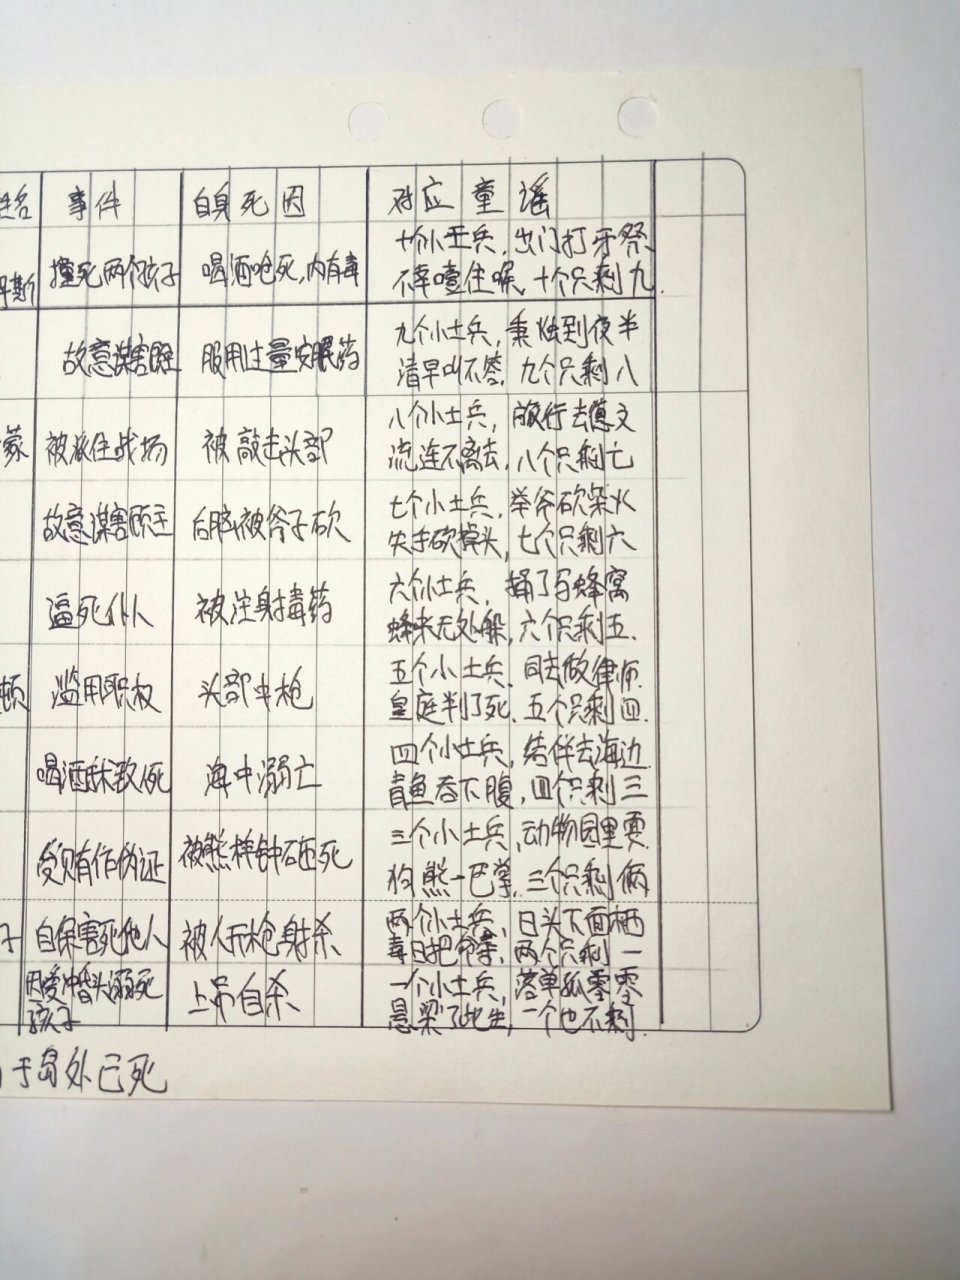 姓名 事件 自身死因 对应童谣
撞死两个孩子 喝酒呛死,内有毒
十个小士兵,出门打牙祭
不幸噎住喉,十个只剩九.
故意谋害 服用过量安眠药
九个小士兵,秉烛到夜半
清早叫不答,九个只剩八
蒙 被派住战场 被敲击头部
八个小士兵,旅行去德文
流连不离去,八个只剩七
故意谋害雇主 后脑被斧子砍
七个小士兵,举斧砍柴火
失手砍掉头,七个只剩六
逼死仆人 被注射毒药
六个小士兵,捅了马蜂窝
蜂来无处躲,六个只剩五.
顿 滥用职权 头部中枪
五个小士兵,同去做律师.
皇庭判了死,五个只剩四.
喝酒 致死 海中溺亡
四个小士兵,结伴去海边
青鱼吞下腹,四个只剩三
受贿作伪证 被熊样钟砸死
三个小士兵,动物园里耍.
狗熊一巴掌,三个只剩俩
子 自保害死他人 被人开枪射杀
两个小士兵,日头下面栖
毒日把命,两个只剩一
因爱冲昏头溺死
孩子
上吊自杀
一个小士兵,落单孤零零
悬梁了此生,一个也不剩.
于岛外已死